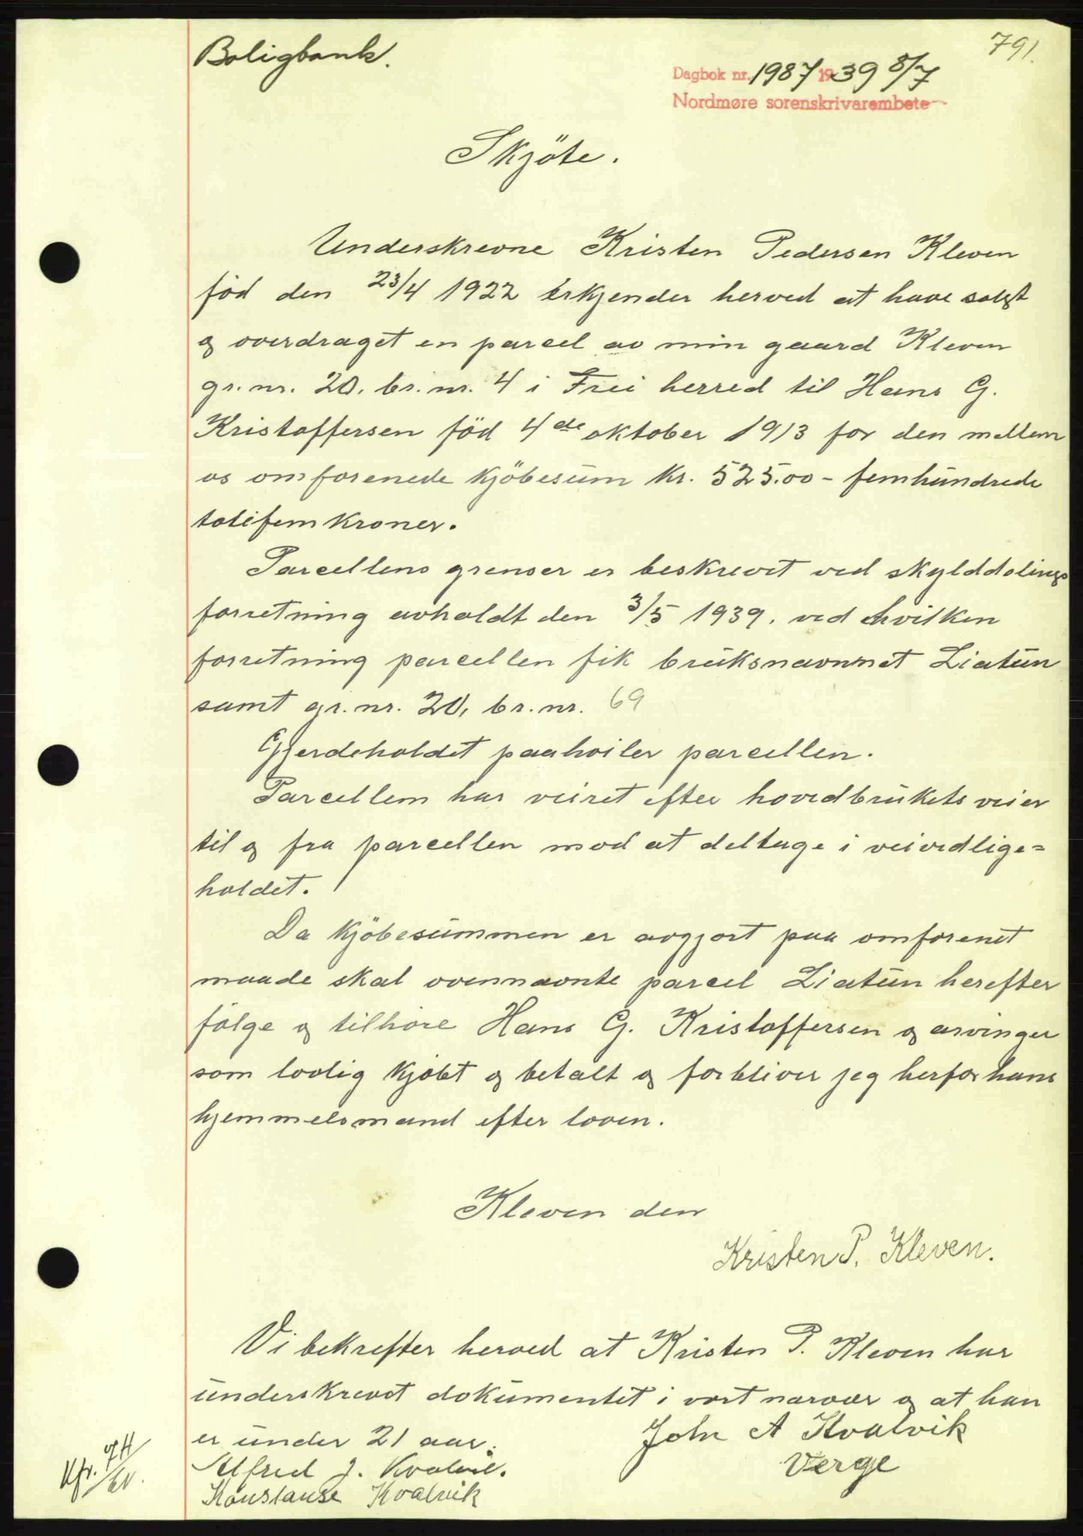 791.
Boligbank.
Dagbok nr. 1987 1939 8/7
Nordmøre sorenskrivarembete
Skjöte.
Underskrevne Kristen Pedersen Kleven
föd den 23/4 1922 erkjender herved at have solgt
og overdraget en parcel av min gaard Kleven
gr. nr. 20, br. nr. 4 i Frei herred til Hans G.
Kristoffersen föd 4de oktober 1913 for den mellem
os omforenede kjöbesum kr. 525.00 - femhundrede
totifem kroner.
Parcellens grenser er beskrevet ved skylddelings
forretning avholdt den 3/5 1939. ved hvilken
forretning parcellen fik bruksnavnet Liatun
samt gr. nr. 20, br. nr. 69
Gjerdeholdet paahviler parcellen.
Parcellem har veiret efter hovedbrukets veier
til og fra parcellen mod at deltage i veivedlige=
holdet.
Da kjöbesummen er avgjort paa omforenet
maade skal ovennævnte parcel Liatun herefter
fölge og tilhöre Hans G. Kristoffersen og arvinger
som lovlig kjöbt og betalt og forbliver jeg herfor hans
hjemmelsmand efter loven.
Kleven den
Kristen P. Kleven.
Vi bekrefter herved at Kristen P. Kleven har
underskrevet dokumentet i vort nærvær og at han
er under 21 aar.
John A Kvalvik
Verge
Alfred J. Kvalvik.
Konstanse Kvalvik
Kfr.